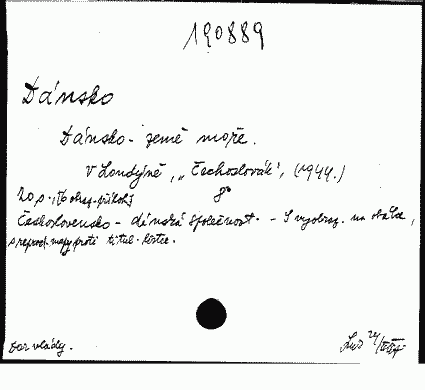 190889
Dánsko
Dánsko - země moře.
V Londýně, „Čechoslovák“, (1944.)
20 s., [6 obraz. příloh] 8°
Československo - dánská společnost. - S vyobraz. na obálce,
s reprod. mapy proti titul. listce.
Dar vlády.